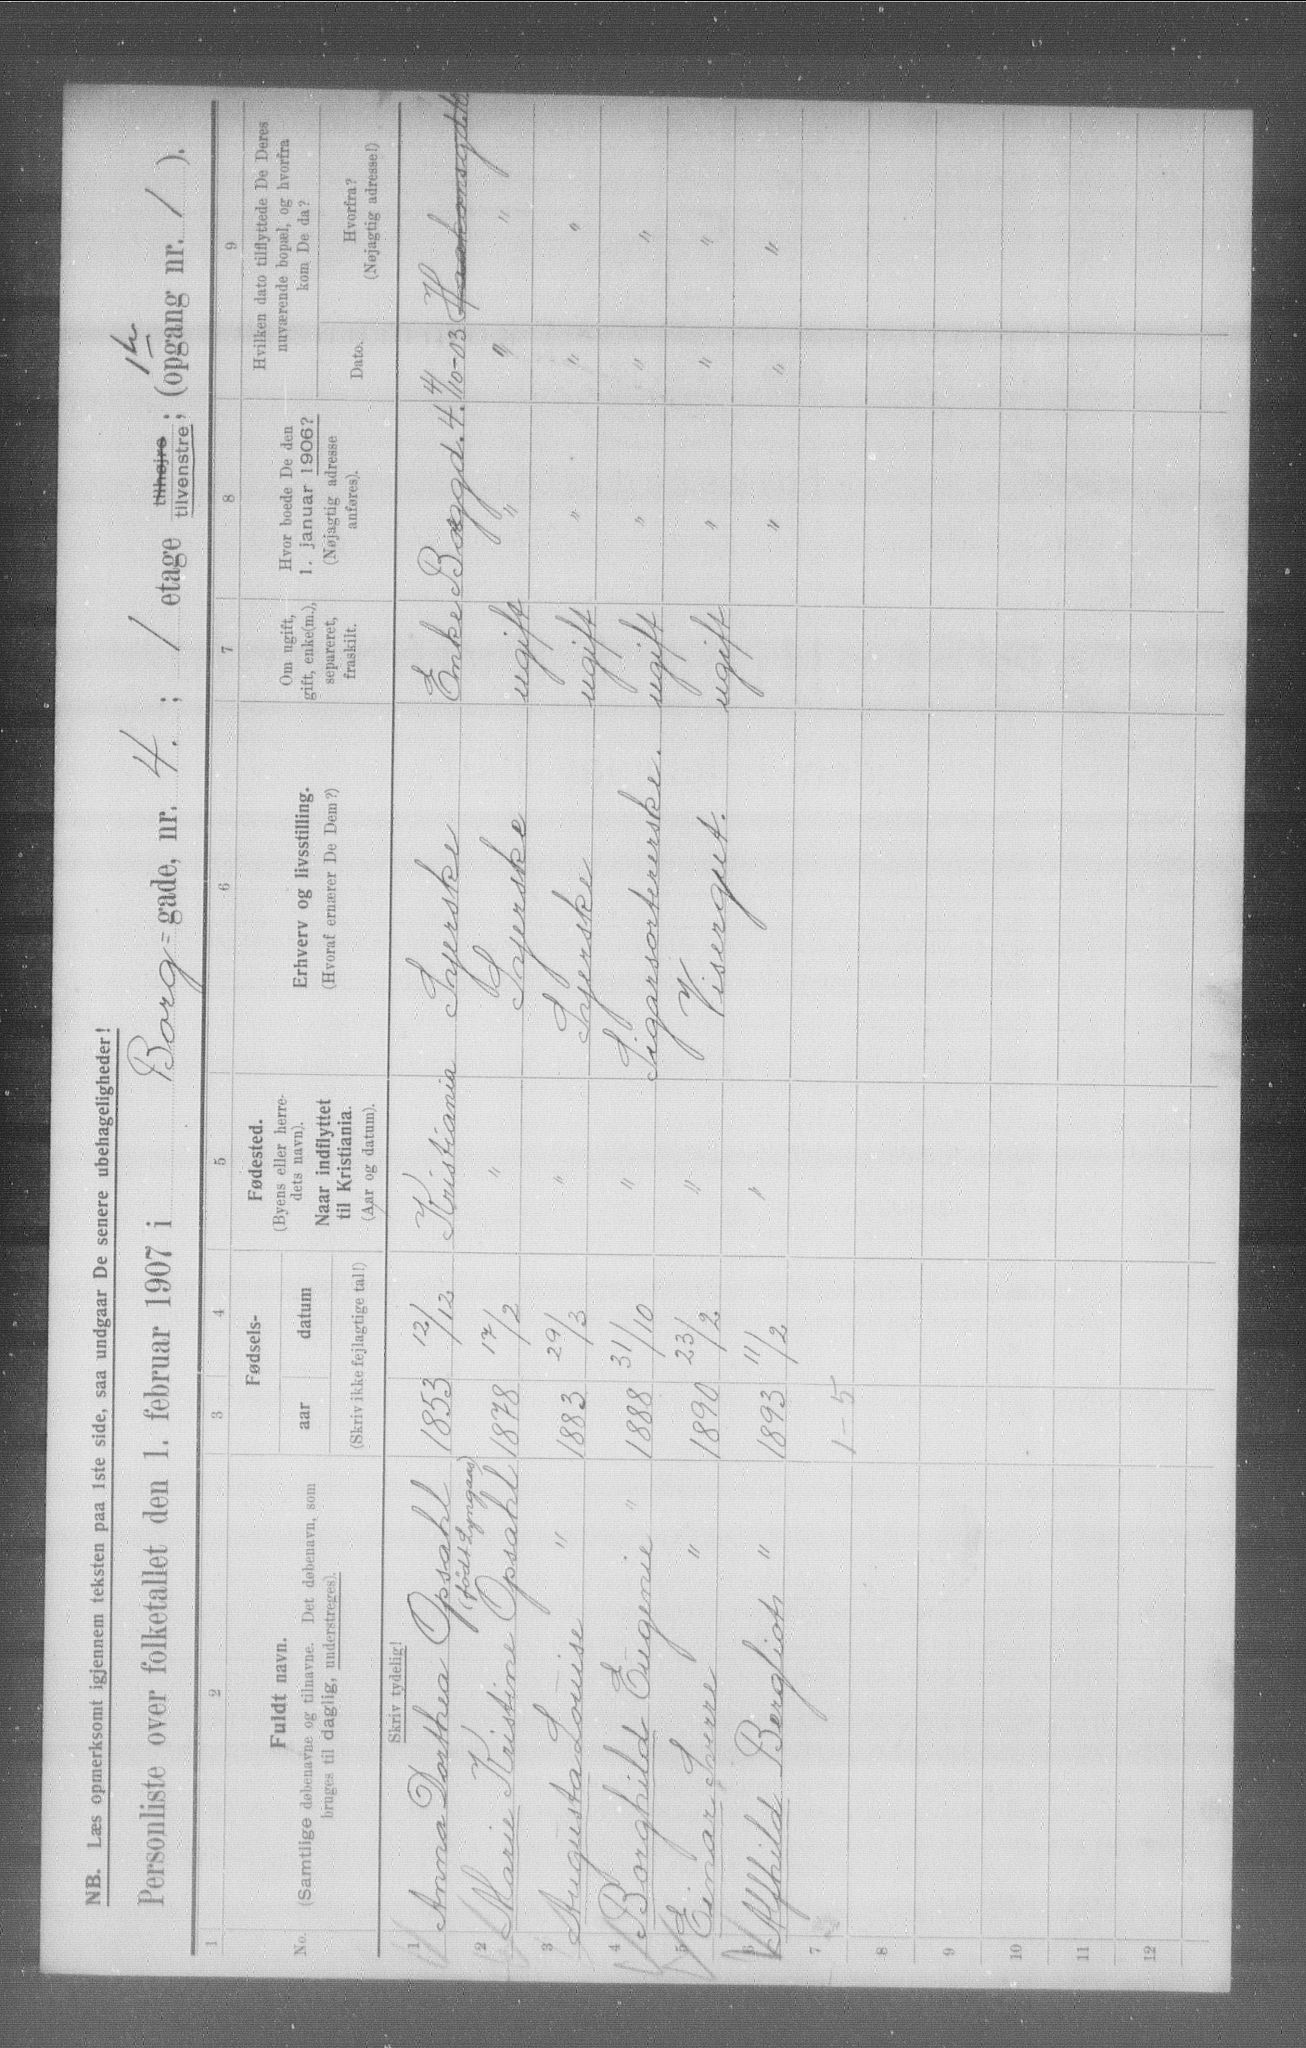 NB. Læs opmerksomt igjennem teksten paa 1ste side, saa undgaar De senere ubehageligheder!
Personliste over folketallet den 1. februar 1907 i Borg=gade, nr. 4. ; 1 etage tilhøjre tilvenstre; (opgang nr. 1 ).
1 2 3 4 5 6 7 8 9
No.
Fuldt navn.
(Samtlige døbenavne og tilnavne. Det døbenavn, som
bruges til daglig, understreges).
Fødsels-
aar datum
(Skriv ikke fejlagtige tal!)
Fødested.
(Byens eller herre-
dets navn).
Naar indflyttet
til Kristiania.
(Aar og datum).
Erhverv og livsstilling.
(Hvoraf ernærer De Dem?)
Om ugift,
gift, enke(m.),
separeret,
fraskilt.
Hvor boede De den
1. januar 1906?
(Nøjagtig adresse
anføres).
Hvilken dato tilflyttede De Deres
nuværende bopæl, og hvorfra
kom De da?
Dato.
Hvorfra?
(Nøjagtig adresse!)
Skriv tydelig!
1 Anna Dorthea Opsahl 1853 12/12 Kristiania Syerske Enke Borggd. 4. 4/10-03
(født Lyngaas)
2 Marie Kristine Opsahl 1878 17/2 " Syerske ugift " " "
3 Augusta Louise " 1883 29/3 " Syerske ugift " " "
4 Borghild Eugenie " 1888 31/10 " Sigarsortererske. ugift " " "
5 Einar Sverre " 1890 23/2 " Visergut. ugift " " "
6 Alfhild Bergliot " 1893 11/2 " " " "
7 1-5
8
9
10
11
12